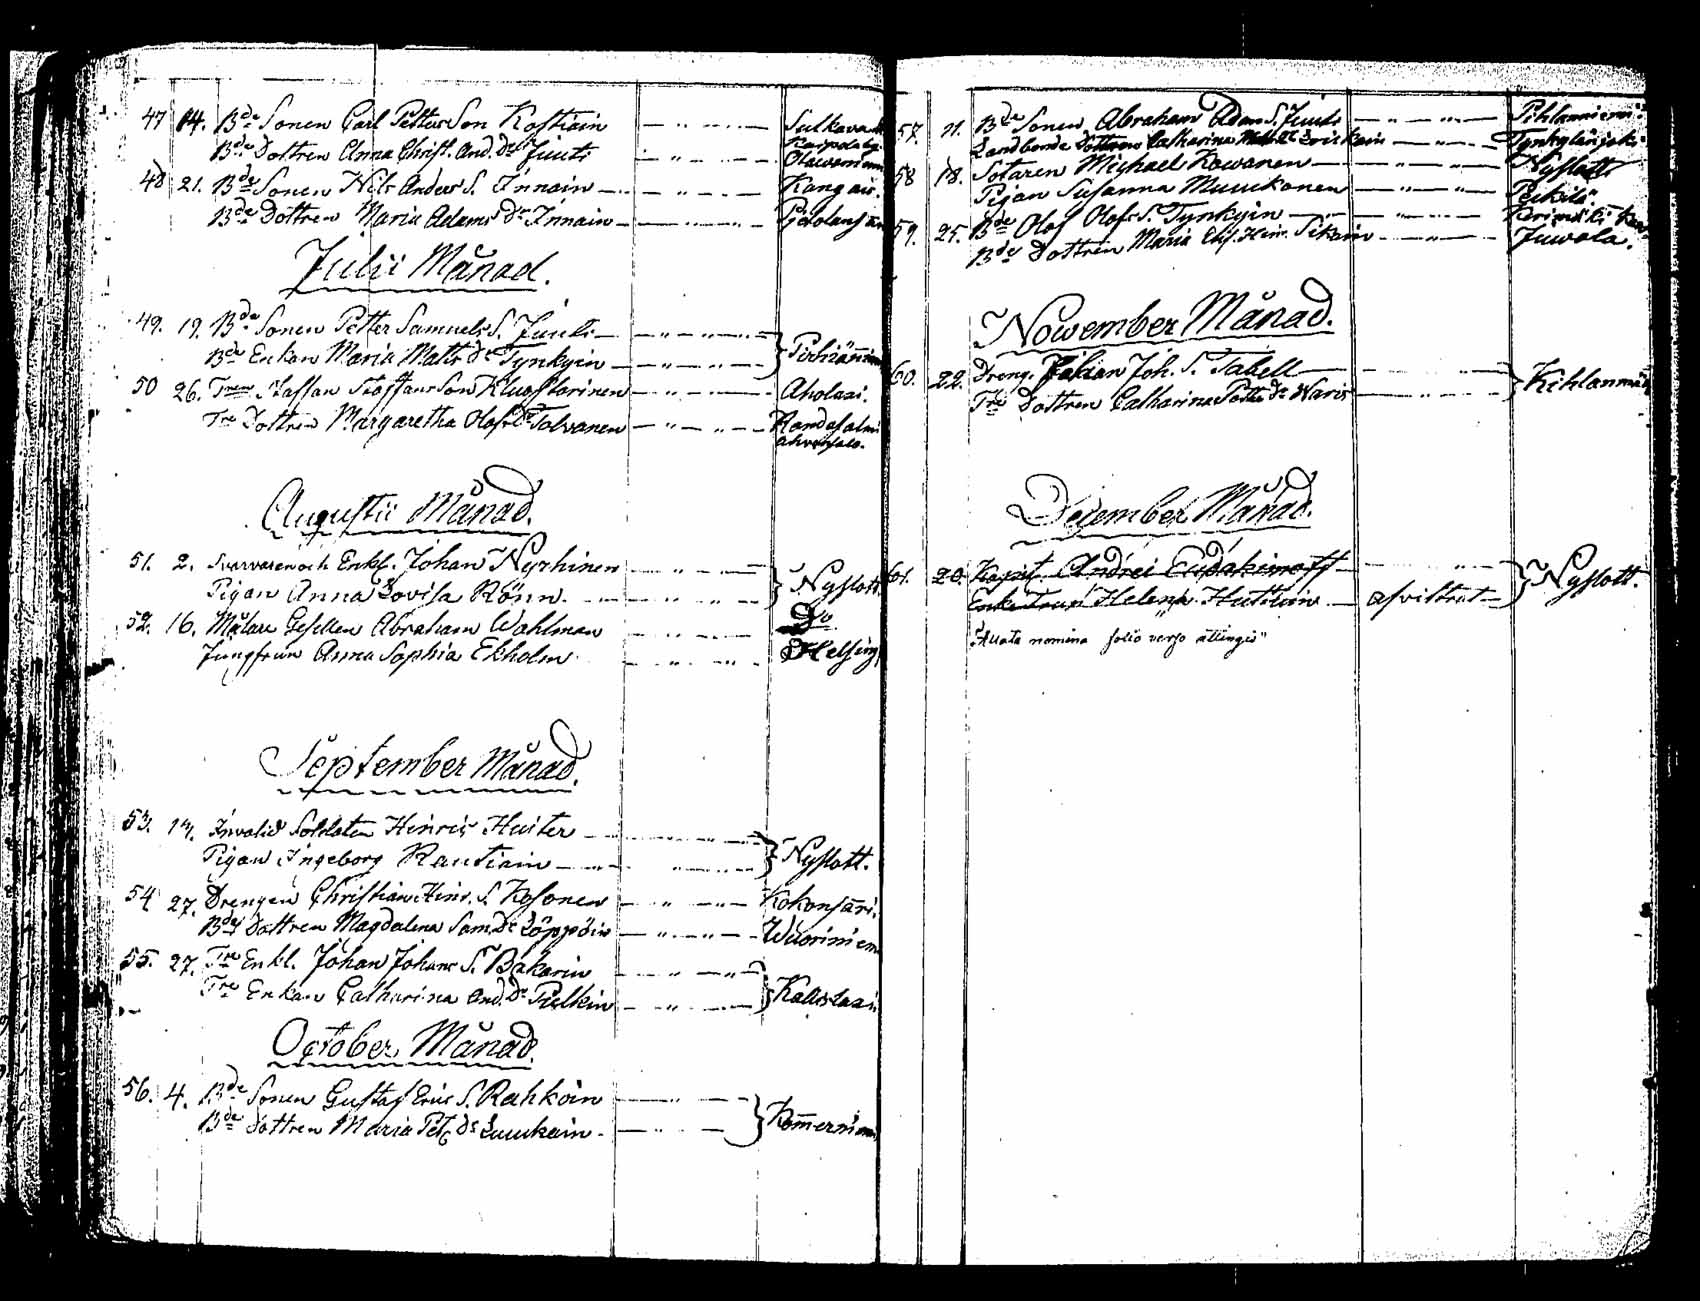 47 14. Bde Sonen Carl Petters Son Kostiain — " — " — Sulkava
Bde Dottren Anna Christ. And. Dr Juuti — " — " — Olawaniemi
48 21. Bde Sonen Nils Anders S. Innain — " — " — Kangais.
Bde Dottren Maria Adams Dr Innain — " — " —
Julii Månad.
49. 19. Bde Sonen Petter Samuels S. Juuti — " — " —
Bde Enkan Maria Matts Dr Tynkyin — " — " —
50 26. Staffan Staffans Son Kluostarinen — " — " — Aholaxi.
Tre Dottren Margaretha Olofs Dr Tolvanen — " — " — Randasalmi
Augustii Månad.
51. 2. Svarvaren och Enkl. Johan Nyrhinen — " — " —
Pigan Anna Lovisa Rönn. — " — " — } Nyslott
52. 16. Målare Gesellen Abraham Wahlman — " — " — Do
Jungfrun Anna Sophia Ekholm — " — " — Helsing
September Månad.
53. Invalid Soldaten Hinric Huiter — " — " —
Pigan Ingeborg Rautiain — " — " — } Nyslott.
54 27. Drengen Christian Hinr. S. Kosonen — " — " — Kokonsari.
Bde Dottren Magdalena Sam. Dr Löppöin — " — " — Wuoriniem
55. 27. Tre Enkl. Johan Johans S. Bakarin — " — " —
Tre Enkan Catharina And. Dr Pulkin — " — } Kallislaxi
October Månad.
56. 4. Bde Sonen Gustaf Eric S. Rahkoin — " — " —
Bde Dottren Maria Pet. Dr Luukain — " — }
57. 11. Bde Sonen Abraham Adam S. Juuti — " — " — Pihlaniemi
Landbonde Dottren Catharina Erickain — " — " — Tynkylänjoki
58 18. Sotaren Michael Kowanen — " — Nyslott
Pigan Susanna Muukonen — " — Pekilä.
59. 25. Bde Olof Olofs S. Tynkyin — " — Kerimäki
Bde Dottren Maria Elis. Hinr. Pikain — " — Juwola.
Nowember Månad.
60. 22. Dreng. Johan Joh. S. Tabell — " — " —
Tre Dottren Catharina Pett. Dr Waris — " — }
December Månad.
61. 20. Kapit. Andrei Eudakimoff — " —
Enke Frun Helena — afvittrat — } Nyslott.
nomina folio verso